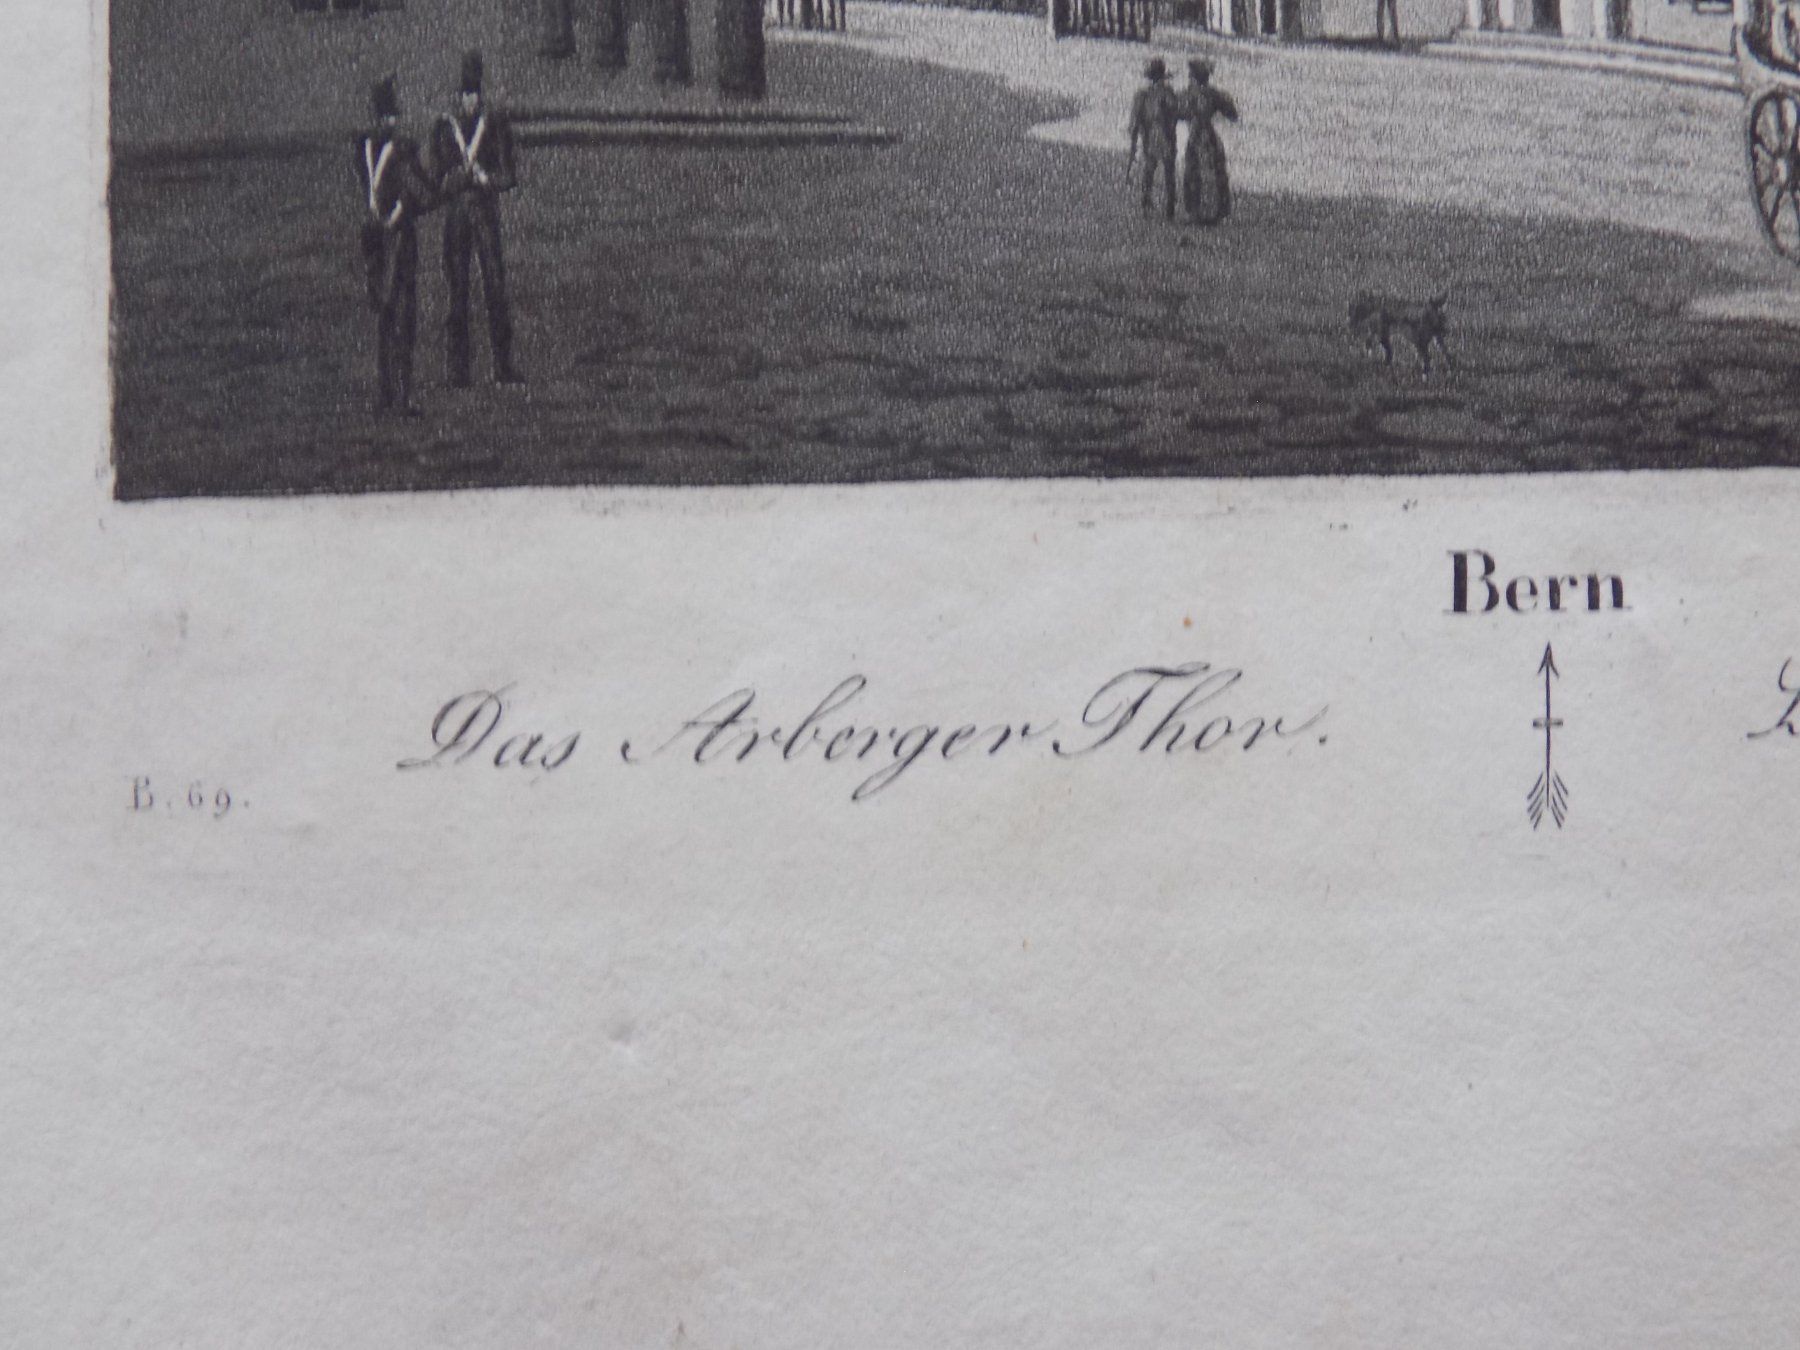 Bern
Das Arberger Thor.
B. 69.